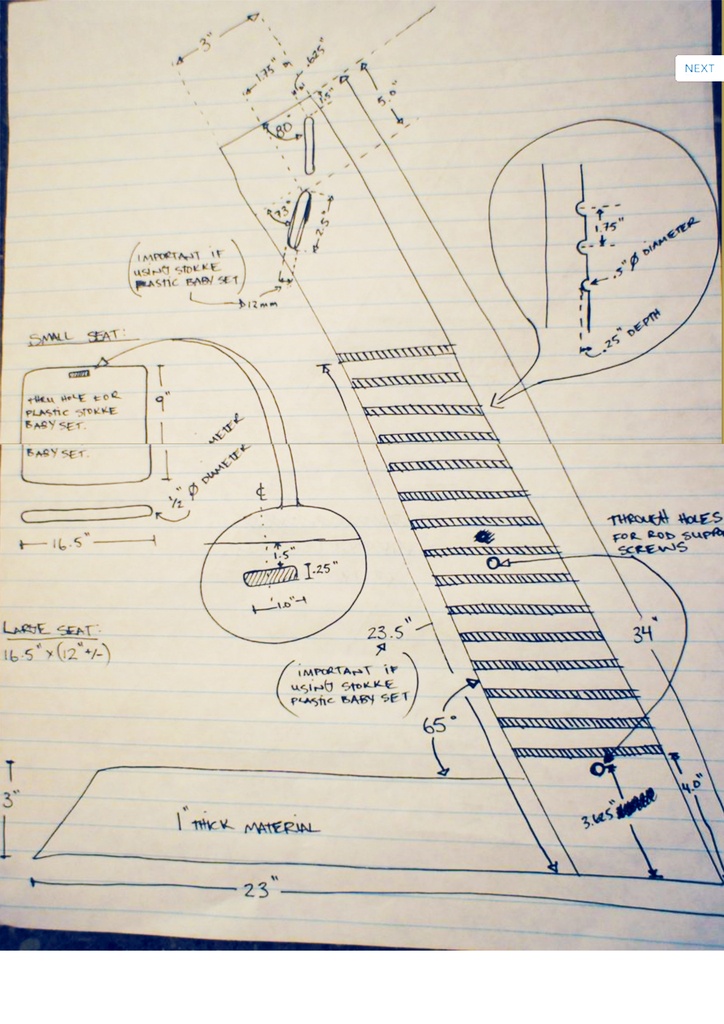 NEXT
3"
1.75"
.625"
1.5"
5.0"
80°
73°
2.5"
(IMPORTANT IF
USING STOKKE
PLASTIC BABY SET)
12mm
1.75"
.5" Ø DIAMETER
.25" DEPTH
SMALL SEAT:
THRU HOLE FOR
PLASTIC STOKKE
BABY SET.
BABY SET.
9"
METER
1/2" Ø DIAMETER
16.5"
℄
1.5"
.25"
1.0"
THROUGH HOLES
FOR ROD SUPPO
SCREWS
LARGE SEAT:
16.5" x (12" +/-)
23.5"
34"
(IMPORTANT IF
USING STOKKE
PLASTIC BABY SET)
65°
3"
1" THICK MATERIAL
3.625"
4.0"
23"